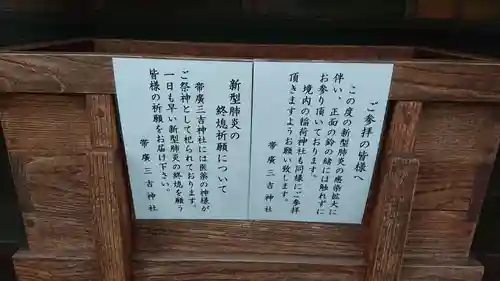 ご参拝の皆様へ
この度の新型肺炎の感染拡大に
伴い、正面の鈴の緒には触れずに
お参り頂いております。
境内の稲荷神社も同様にご参拝
頂きますようお願い致します。
帯廣三吉神社
新型肺炎の
終熄祈願について
帯廣三吉神社には医薬の神様が
ご祭神として祀られております。
一日も早い新型肺炎の終熄を願う
皆様の祈願をお届け下さい。
帯廣三吉神社